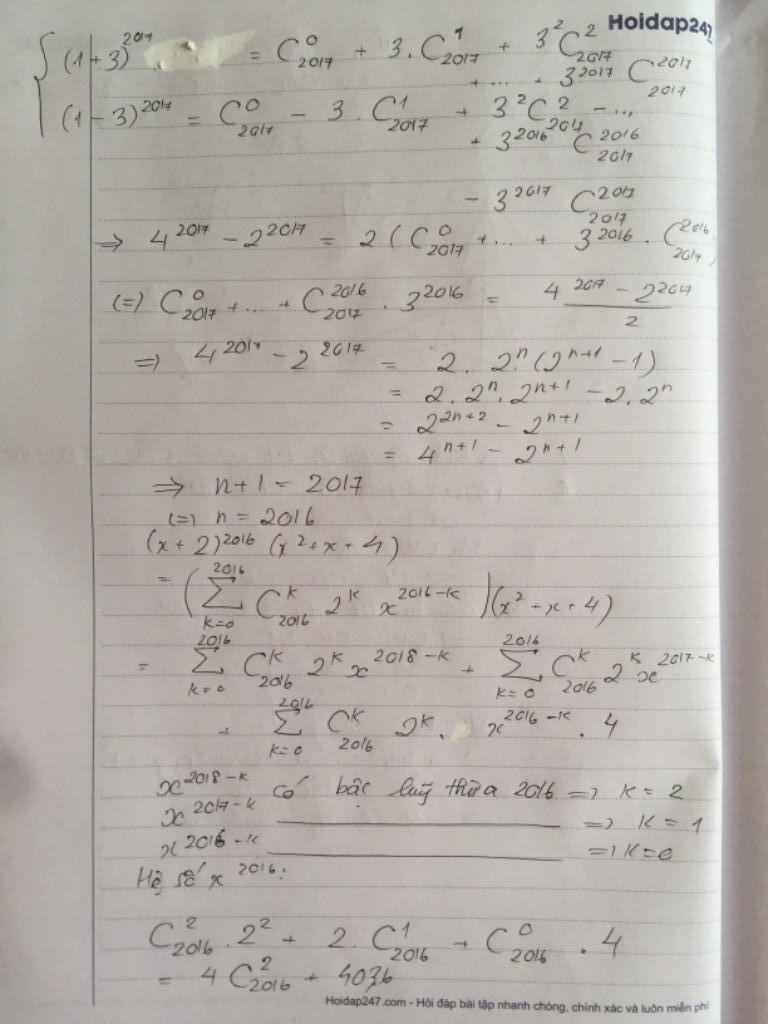 Hoidap247
(1+3)^2017 = C^0_2017 + 3.C^1_2017 + 3^2 C^2_2017
+ ... + 3^2017 C^2017_2017
(1-3)^2017 = C^0_2017 - 3.C^1_2017 + 3^2 C^2_2017 - ...
+ 3^2016 C^2016_2017
- 3^2017 C^2017_2017
=> 4^2017 - 2^2017 = 2(C^0_2017 + ... + 3^2016 . C^2016_2017)
(=) C^0_2017 + ... + C^2016_2017 . 3^2016 = (4^2017 - 2^2017)/2
=> 4^2017 - 2^2017 = 2. 2^n (2^(n+1) - 1)
= 2. 2^n. 2^(n+1) - 2. 2^n
= 2^(2n+2) - 2^(n+1)
= 4^(n+1) - 2^(n+1)
=> n+1 = 2017
(=) n = 2016
(x+2)^2016 (x^2+x+4)
= (∑_{k=0}^{2016} C^k_2016 2^k x^(2016-k))(x^2+x+4)
= ∑_{k=0}^{2016} C^k_2016 2^k x^(2018-k) + ∑_{k=0}^{2016} C^k_2016 2^k x^(2017-k)
+ ∑_{k=0}^{2016} C^k_2016 2^k. x^(2016-k) . 4
x^(2018-k) có bậc luỹ thừa 2016 => k = 2
x^(2017-k) => k = 1
x^(2016-k) => k = 0
Hệ số x^2016:
C^2_2016 . 2^2 + 2. C^1_2016 + C^0_2016 . 4
= 4 C^2_2016 + 4036
Hoidap247.com - Hỏi đáp bài tập nhanh chóng, chính xác và luôn miễn phí